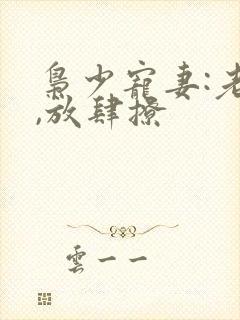 梟少寵妻:老
,放肆撩
雲一一